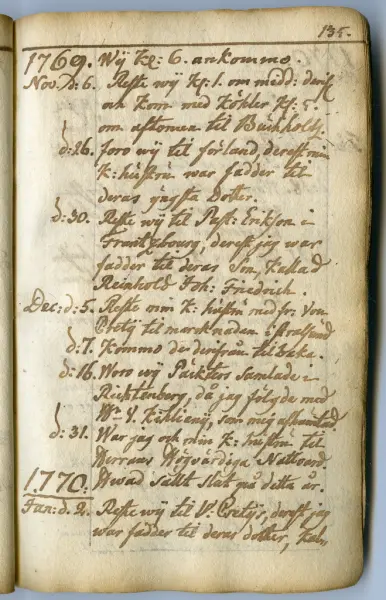 135.
1769. Wÿ Kl: 6. ankommo.
Nov. d: 6. Reste wÿ Kl: 1. om midd: derifr
och kom med Köhler Kl: 5.
om aftonen til Buchholtz.
d: 26. foro wÿ til förland, derest min
K: hustru war fadder til
deras yngsta Dotter.
d: 30. Reste wÿ til Past: Erikson i
Frantzbourg, derest jag war
fadder til deras Son, kallad
Reinhold Joh: Friedrich.
Dec: d: 5. Reste min K: hustru med fr: Von
til marcknaden i Stralsund
d: 7. Kommo de derifrån tilbaka.
d: 16. Woro wÿ Päckters samlade i
Richtenberg, då jag följde med
som mig afhemtad
d: 31. War jag och min K: hustru til
Herrans Högvärdiga Nattvard.
Hwad sällt slut på detta år.
1770.
Jan: d. 2. Reste wÿ til derest jag
war fadder til deras dotter, kall